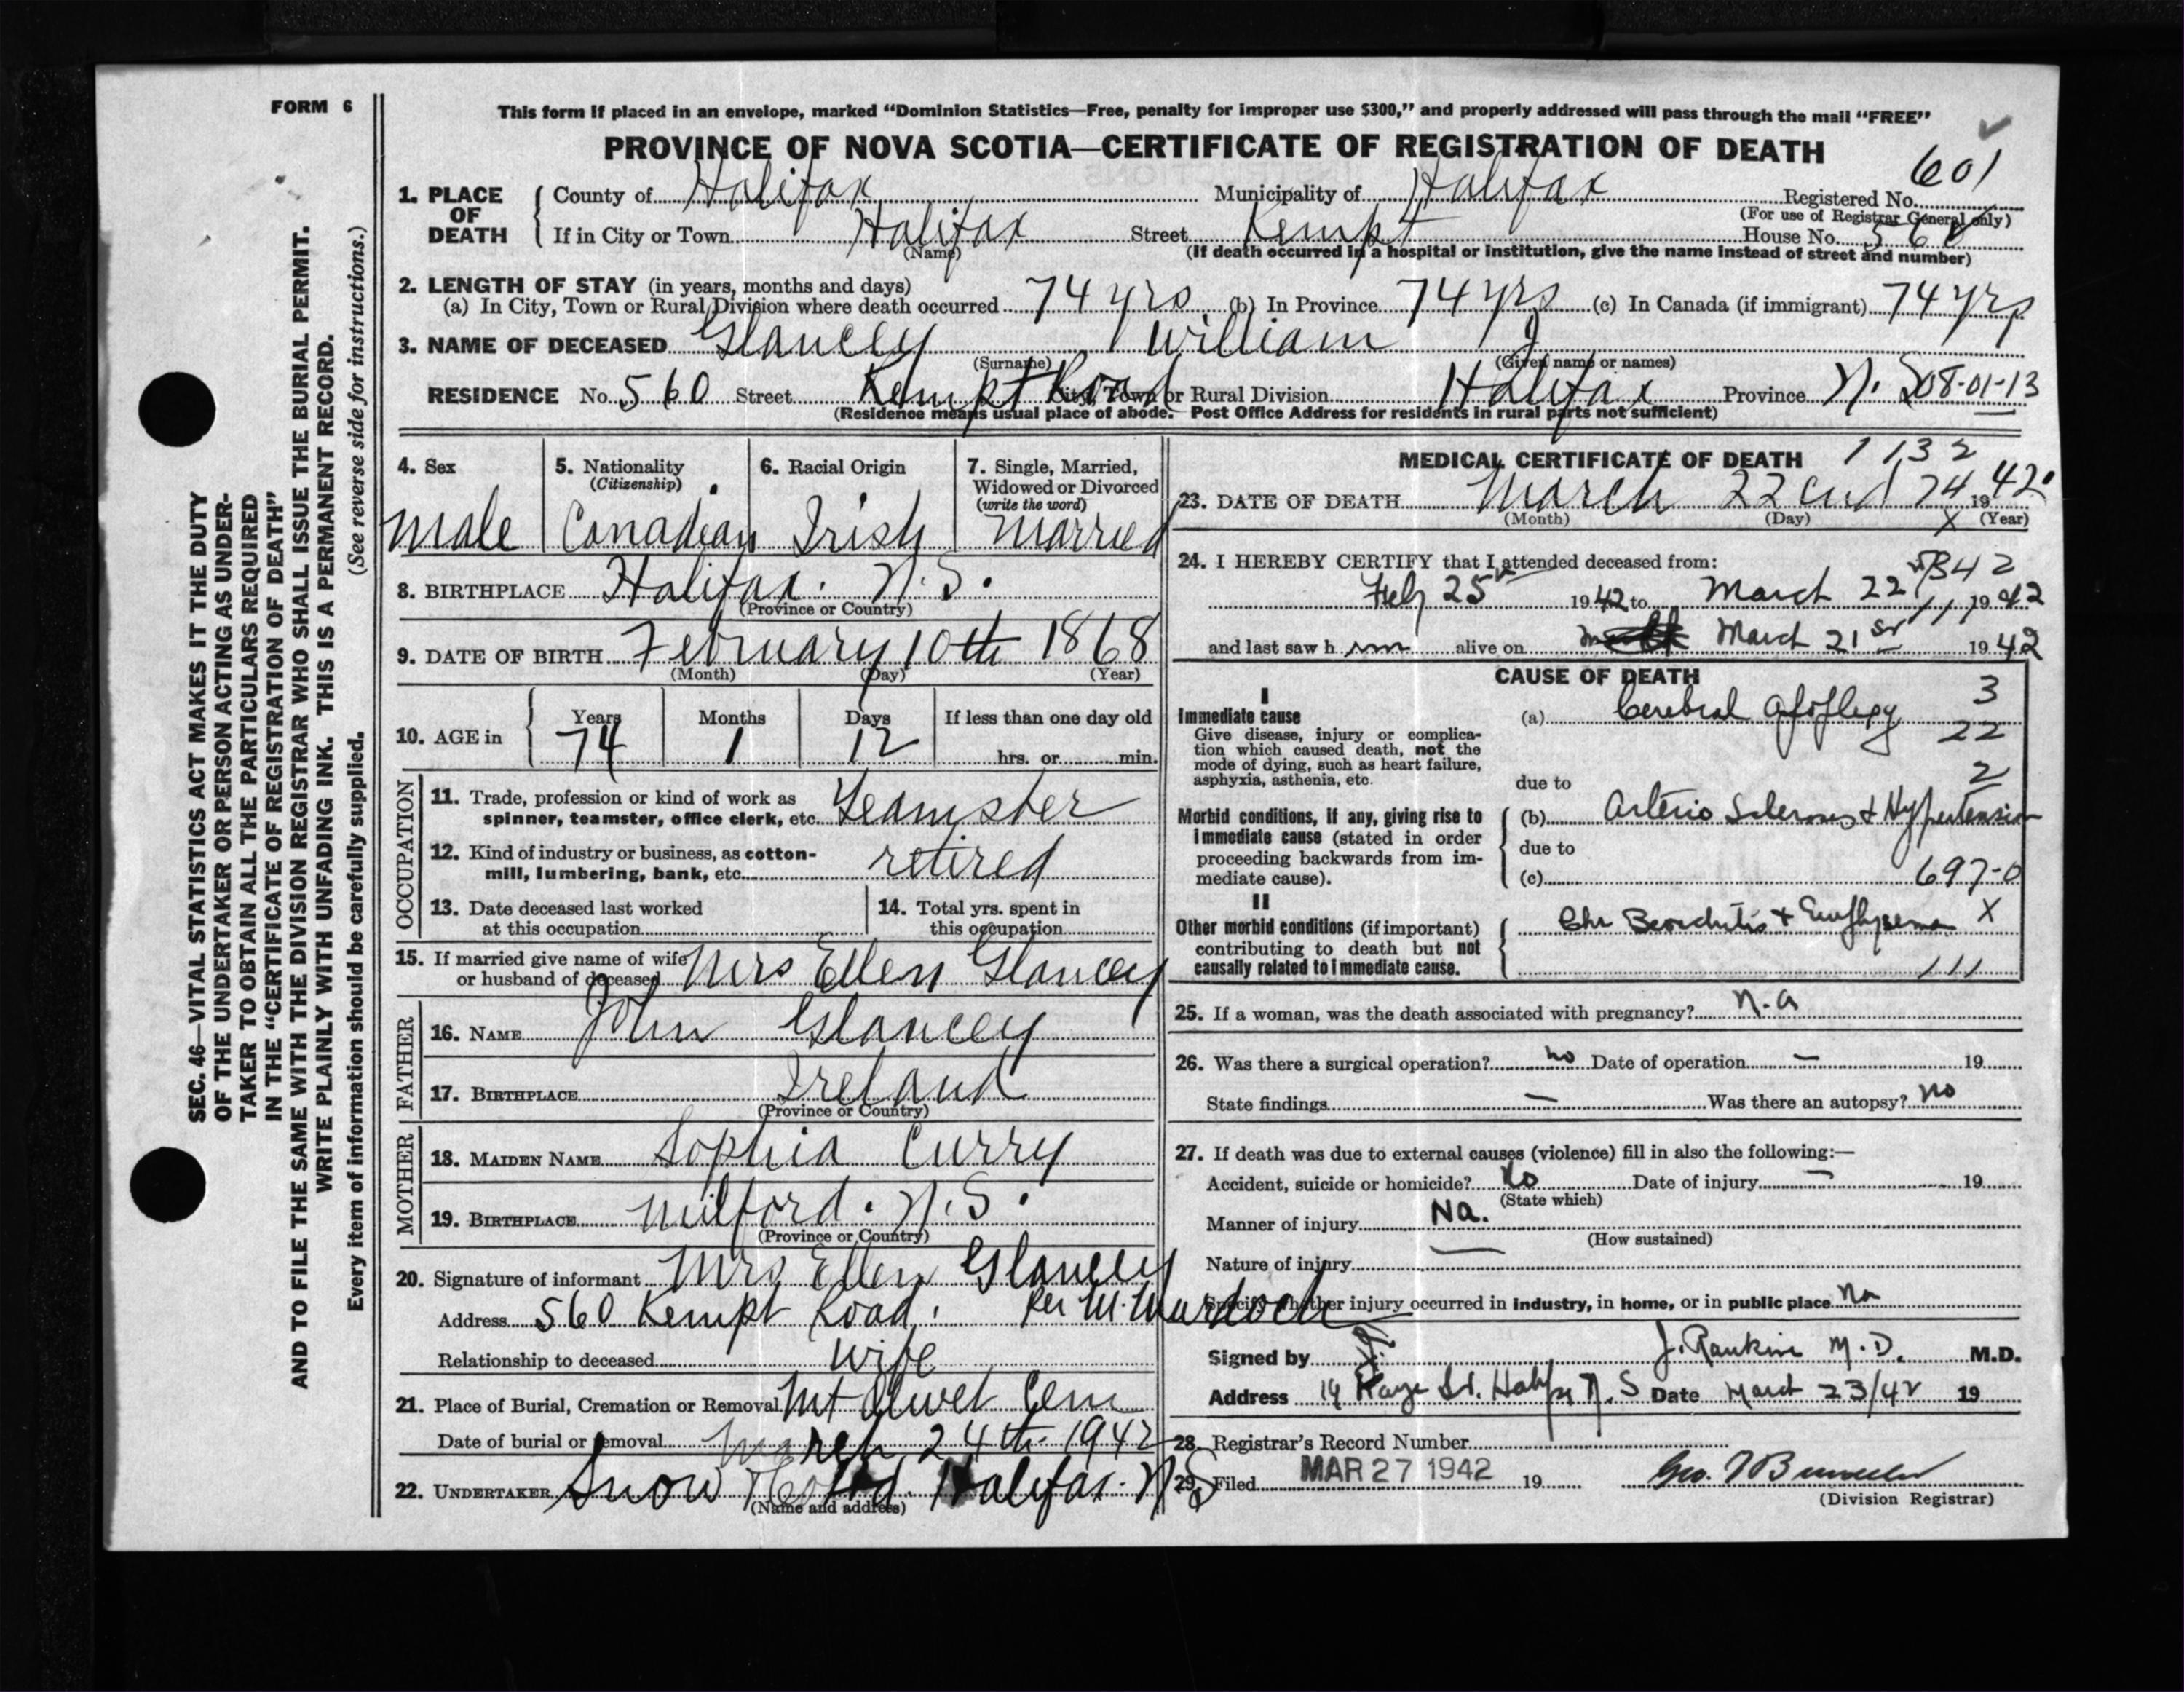 FORM 6
This form if placed in an envelope, marked “Dominion Statistics—Free, penalty for improper use $300,” and properly addressed will pass through the mail “FREE”
PROVINCE OF NOVA SCOTIA—CERTIFICATE OF REGISTRATION OF DEATH
SEC. 46—VITAL STATISTICS ACT MAKES IT THE DUTY
OF THE UNDERTAKER OR PERSON ACTING AS UNDER-
TAKER TO OBTAIN ALL THE PARTICULARS REQUIRED
IN THE “CERTIFICATE OF REGISTRATION OF DEATH”
AND TO FILE THE SAME WITH THE DIVISION REGISTRAR WHO SHALL ISSUE THE BURIAL PERMIT.
WRITE PLAINLY WITH UNFADING INK. THIS IS A PERMANENT RECORD.
Every item of information should be carefully supplied. (See reverse side for instructions.)
1. PLACE OF DEATH
County of Halifax Municipality of Halifax Registered No. 601
(For use of Registrar General only)
If in City or Town Halifax Street Kempt House No. 560
(Name) (If death occurred in a hospital or institution, give the name instead of street and number)
2. LENGTH OF STAY (in years, months and days)
(a) In City, Town or Rural Division where death occurred 74 yrs (b) In Province 74 yrs (c) In Canada (if immigrant) 74 yrs
3. NAME OF DECEASED Glancey William J
(Surname) (Given name or names)
RESIDENCE No. 560 Street Kempt Road City, Town or Rural Division Halifax Province N.S 08-01-13
(Residence means usual place of abode. Post Office Address for residents in rural parts not sufficient)
4. Sex
male
5. Nationality
(Citizenship)
Canadian
6. Racial Origin
Irish
7. Single, Married,
Widowed or Divorced
(write the word)
married
8. BIRTHPLACE Halifax. N.S.
(Province or Country)
9. DATE OF BIRTH February 10th 1868
(Month) (Day) (Year)
10. AGE in
Years Months Days If less than one day old
74 1 12 hrs. or min.
OCCUPATION
11. Trade, profession or kind of work as
spinner, teamster, office clerk, etc. Teamster
12. Kind of industry or business, as cotton-
mill, lumbering, bank, etc. retired
13. Date deceased last worked
at this occupation
14. Total yrs. spent in
this occupation
15. If married give name of wife
or husband of deceased Mrs Ellen Glancey
FATHER
16. NAME John Glancey
17. BIRTHPLACE Ireland
(Province or Country)
MOTHER
18. MAIDEN NAME Sophia Curry
19. BIRTHPLACE Milford. N.S.
(Province or Country)
20. Signature of informant Mrs Ellen Glancey
Address 560 Kempt Road. Per M. Murdoch
Relationship to deceased wife
21. Place of Burial, Cremation or Removal Mt Olivet Cem
Date of burial or removal March 24th 1942
22. UNDERTAKER Snow & Co Ltd. Halifax. N.S
(Name and address)
MEDICAL CERTIFICATE OF DEATH 1132
23. DATE OF DEATH March 22 74 1942.
(Month) (Day) X (Year)
24. I HEREBY CERTIFY that I attended deceased from: 1342
Feb 25 1942 to March 22 111 1942
and last saw h im alive on March 21st 1942
CAUSE OF DEATH
I
Immediate cause
Give disease, injury or complica-
tion which caused death, not the
mode of dying, such as heart failure,
asphyxia, asthenia, etc.
(a) Cerebral Apoplexy 3
22
due to 2
Morbid conditions, if any, giving rise to
immediate cause (stated in order
proceeding backwards from im-
mediate cause).
(b) Arterio Sclerosis & Hypertension
due to
(c) 697-0
II
Other morbid conditions (if important)
contributing to death but not
causally related to immediate cause.
Chr Bronchitis & Emphysema X
111
25. If a woman, was the death associated with pregnancy? n.a
26. Was there a surgical operation? no Date of operation — 19
State findings — Was there an autopsy? no
27. If death was due to external causes (violence) fill in also the following:—
Accident, suicide or homicide? No Date of injury — 19
(State which)
Manner of injury Na.
(How sustained)
Nature of injury —
Specify whether injury occurred in industry, in home, or in public place na
Signed by J. Rankine M.D. M.D.
Address 19 Kaye St. Halifx N.S Date March 23/42 19
28. Registrar's Record Number
29. Filed MAR 27 1942 19
(Division Registrar)